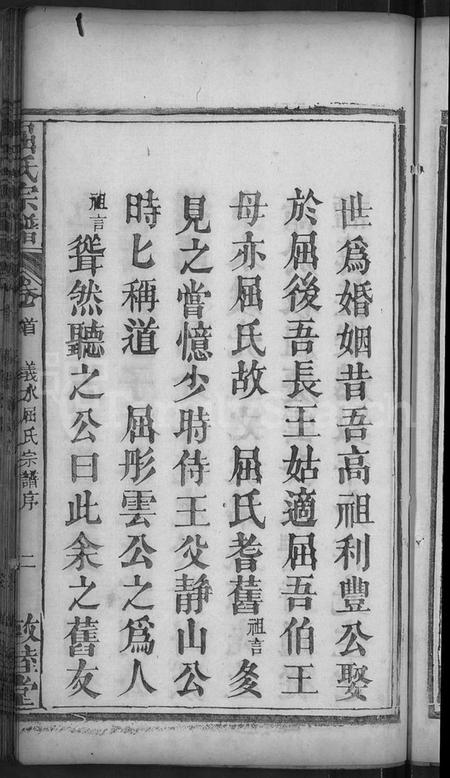 世爲婚姻昔吾高祖利豐公娶
於屈後吾長王姑適屈吾伯王
母亦屈氏故 屈氏耆舊祖言多
見之嘗憶少時侍王父静山公
時匕稱道 屈彤雲公之爲人
祖言聳然聽之公曰此余之舊友
屈氏宗譜 卷首 義水屈氏宗譜序 二 敦睦堂